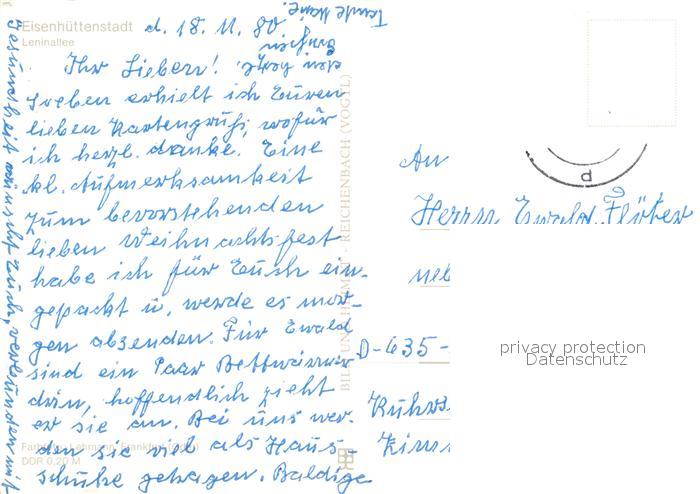 Eisenhüttenstadt
Leninallee
d. 18. 11. 80
Ihr Lieben!
Soeben erhielt ich Euren
lieben Kartengruß, wofür
ich herzl. danke. Eine
kl. Aufmerksamkeit
zum bevorstehenden
lieben Weihnachtsfest
habe ich für Euch ein-
gepackt u. werde es mor-
gen absenden. Für Ewald
sind ein Paar Bettwärmer
drin, hoffendlich zieht
er sie an. Bei uns wer-
den sie viel als Haus-
schuhe getragen. Baldige
Gesundheit wünscht Euch, verbunden mit
Tante Marie.
BILD UND HEIMAT REICHENBACH (VOGTL)
An
Herrn Ewald Flöter
neb
D-635-
Farbfoto: Lehmann, Frankfurt (Oder)
DDR 0,20 M
privacy protection
Datenschutz